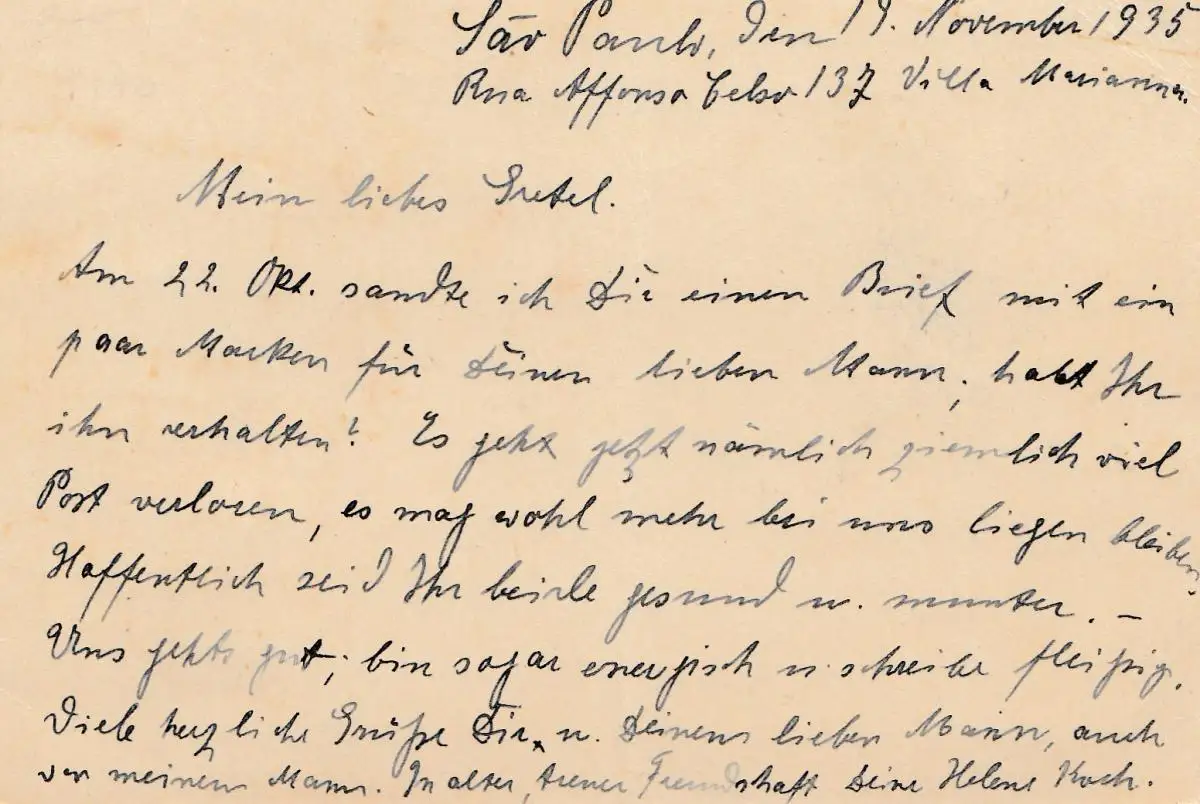 São Paulo, den 19. November 1935
Rua Affonso Celso 137 Villa Marianna.
Mein liebes Gretel.
Am 22. Okt. sandte ich Dir einen Brief mit ein
paar Marken für Deinen lieben Mann, habt Ihr
ihn erhalten? Es geht jetzt nämlich ziemlich viel
Post verloren, es mag wohl mehr bei uns liegen bleiben.
Hoffentlich seid Ihr beide gesund u. munter. –
Uns gehts gut, bin sogar energisch u. schreibe fleißig.
Viele herzliche Grüße Dir u. Deinem lieben Mann, auch
von meinem Mann. In alter, treuer Freundschaft Deine Helene Koch.